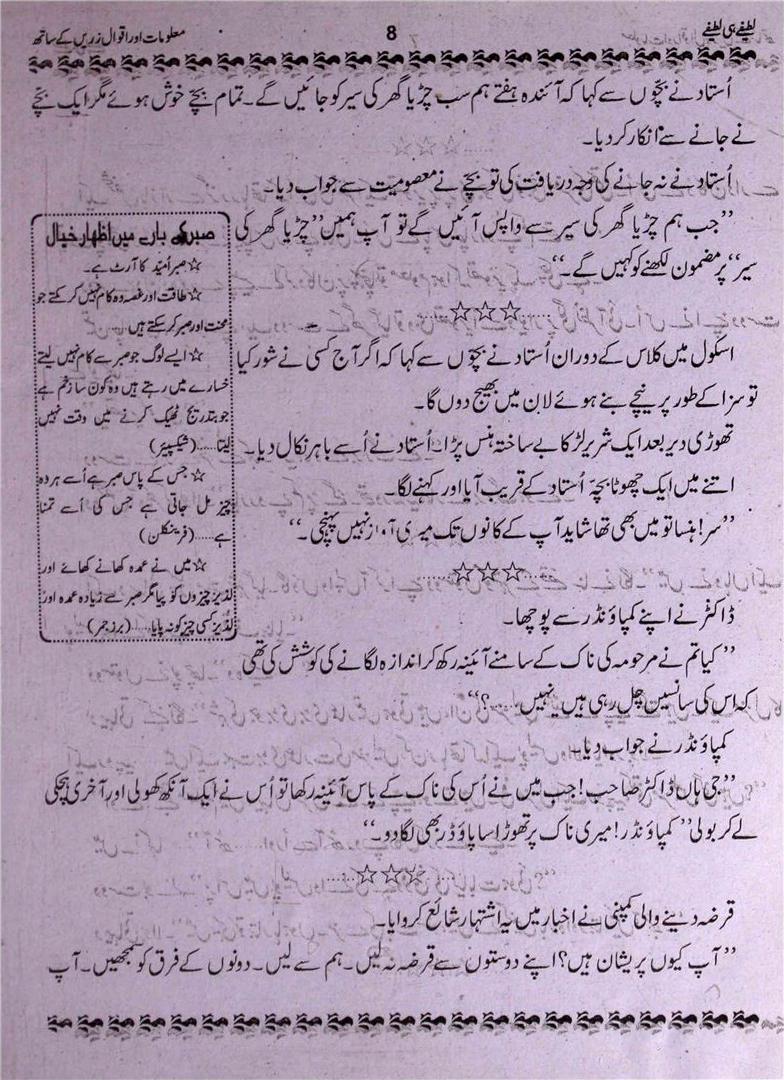 لطیفے ہی لطیفے
8
معلومات اور اقوال زریں کے ساتھ
اُستاد نے بچّوں سے کہا کہ آئندہ ہفتے ہم سب چڑیا گھر کی سیر کو جائیں گے۔ تمام بچّے خوش ہوئے مگر ایک بچّے
نے جانے سے انکار کر دیا۔
اُستاد نے نہ جانے کی وجہ دریافت کی تو بچّے نے معصومیت سے جواب دیا۔
”جب ہم چڑیا گھر کی سیر سے واپس آئیں گے تو آپ ہمیں ”چڑیا گھر کی
سیر“ پر مضمون لکھنے کو کہیں گے۔“
.....☆☆☆.....
اسکول میں کلاس کے دوران اُستاد نے بچّوں سے کہا کہ اگر آج کسی نے شور کیا
تو سزا کے طور پر نیچے بنے ہوئے لان میں بھیج دوں گا۔
تھوڑی دیر بعد ایک شریر لڑکا بے ساختہ ہنس پڑا۔ اُستاد نے اُسے باہر نکال دیا۔
اتنے میں ایک چھوٹا بچّہ اُستاد کے قریب آیا اور کہنے لگا۔
”سر! ہنسا تو میں بھی تھا شاید آپ کے کانوں تک میری آواز نہیں پہنچی۔“
.....☆☆☆.....
ڈاکٹر نے اپنے کمپاؤنڈر سے پوچھا۔
”کیا تم نے مرحومہ کی ناک کے سامنے آئینہ رکھ کر اندازہ لگانے کی کوشش کی تھی
کہ اس کی سانسیں چل رہی ہیں یا نہیں.....؟“
کمپاؤنڈر نے جواب دیا۔
”جی ہاں ڈاکٹر صاحب! جب میں نے اُس کی ناک کے پاس آئینہ رکھا تو اُس نے ایک آنکھ کھولی اور آخری ہچکی
لے کر بولی” کمپاؤنڈر! میری ناک پر تھوڑا سا پاؤڈر بھی لگا دو۔“
.....☆☆☆.....
قرضہ دینے والی کمپنی نے اخبار میں یہ اشتہار شائع کروایا۔
”آپ کیوں پریشان ہیں؟ اپنے دوستوں سے قرضہ نہ لیں۔ ہم سے لیں۔ دونوں کے فرق کو سمجھیں۔ آپ
صبر کے بارے میں اظہار خیال
☆ صبر اُمید کا آرٹ ہے۔
☆ طاقت اور غصہ وہ کام نہیں کر سکتے جو
محنت اور صبر کر سکتے ہیں۔
☆ ایسے لوگ جو صبر سے کام نہیں لیتے
خسارے میں رہتے ہیں وہ کون سا زخم ہے
جو بتدریج ٹھیک کرنے میں وقت نہیں
لیتا.....(شیکسپیئر)
☆ جس کے پاس صبر ہے اُسے ہر وہ
چیز مل جاتی ہے جس کی اُسے تمنا
ہے.....(فرینکلن)
☆ میں نے عمدہ کھانے کھائے اور
لذیز چیزوں کو پیا مگر صبر سے زیادہ عمدہ اور
لذیز کسی چیز کو نہ پایا.....(بزرجمہر)